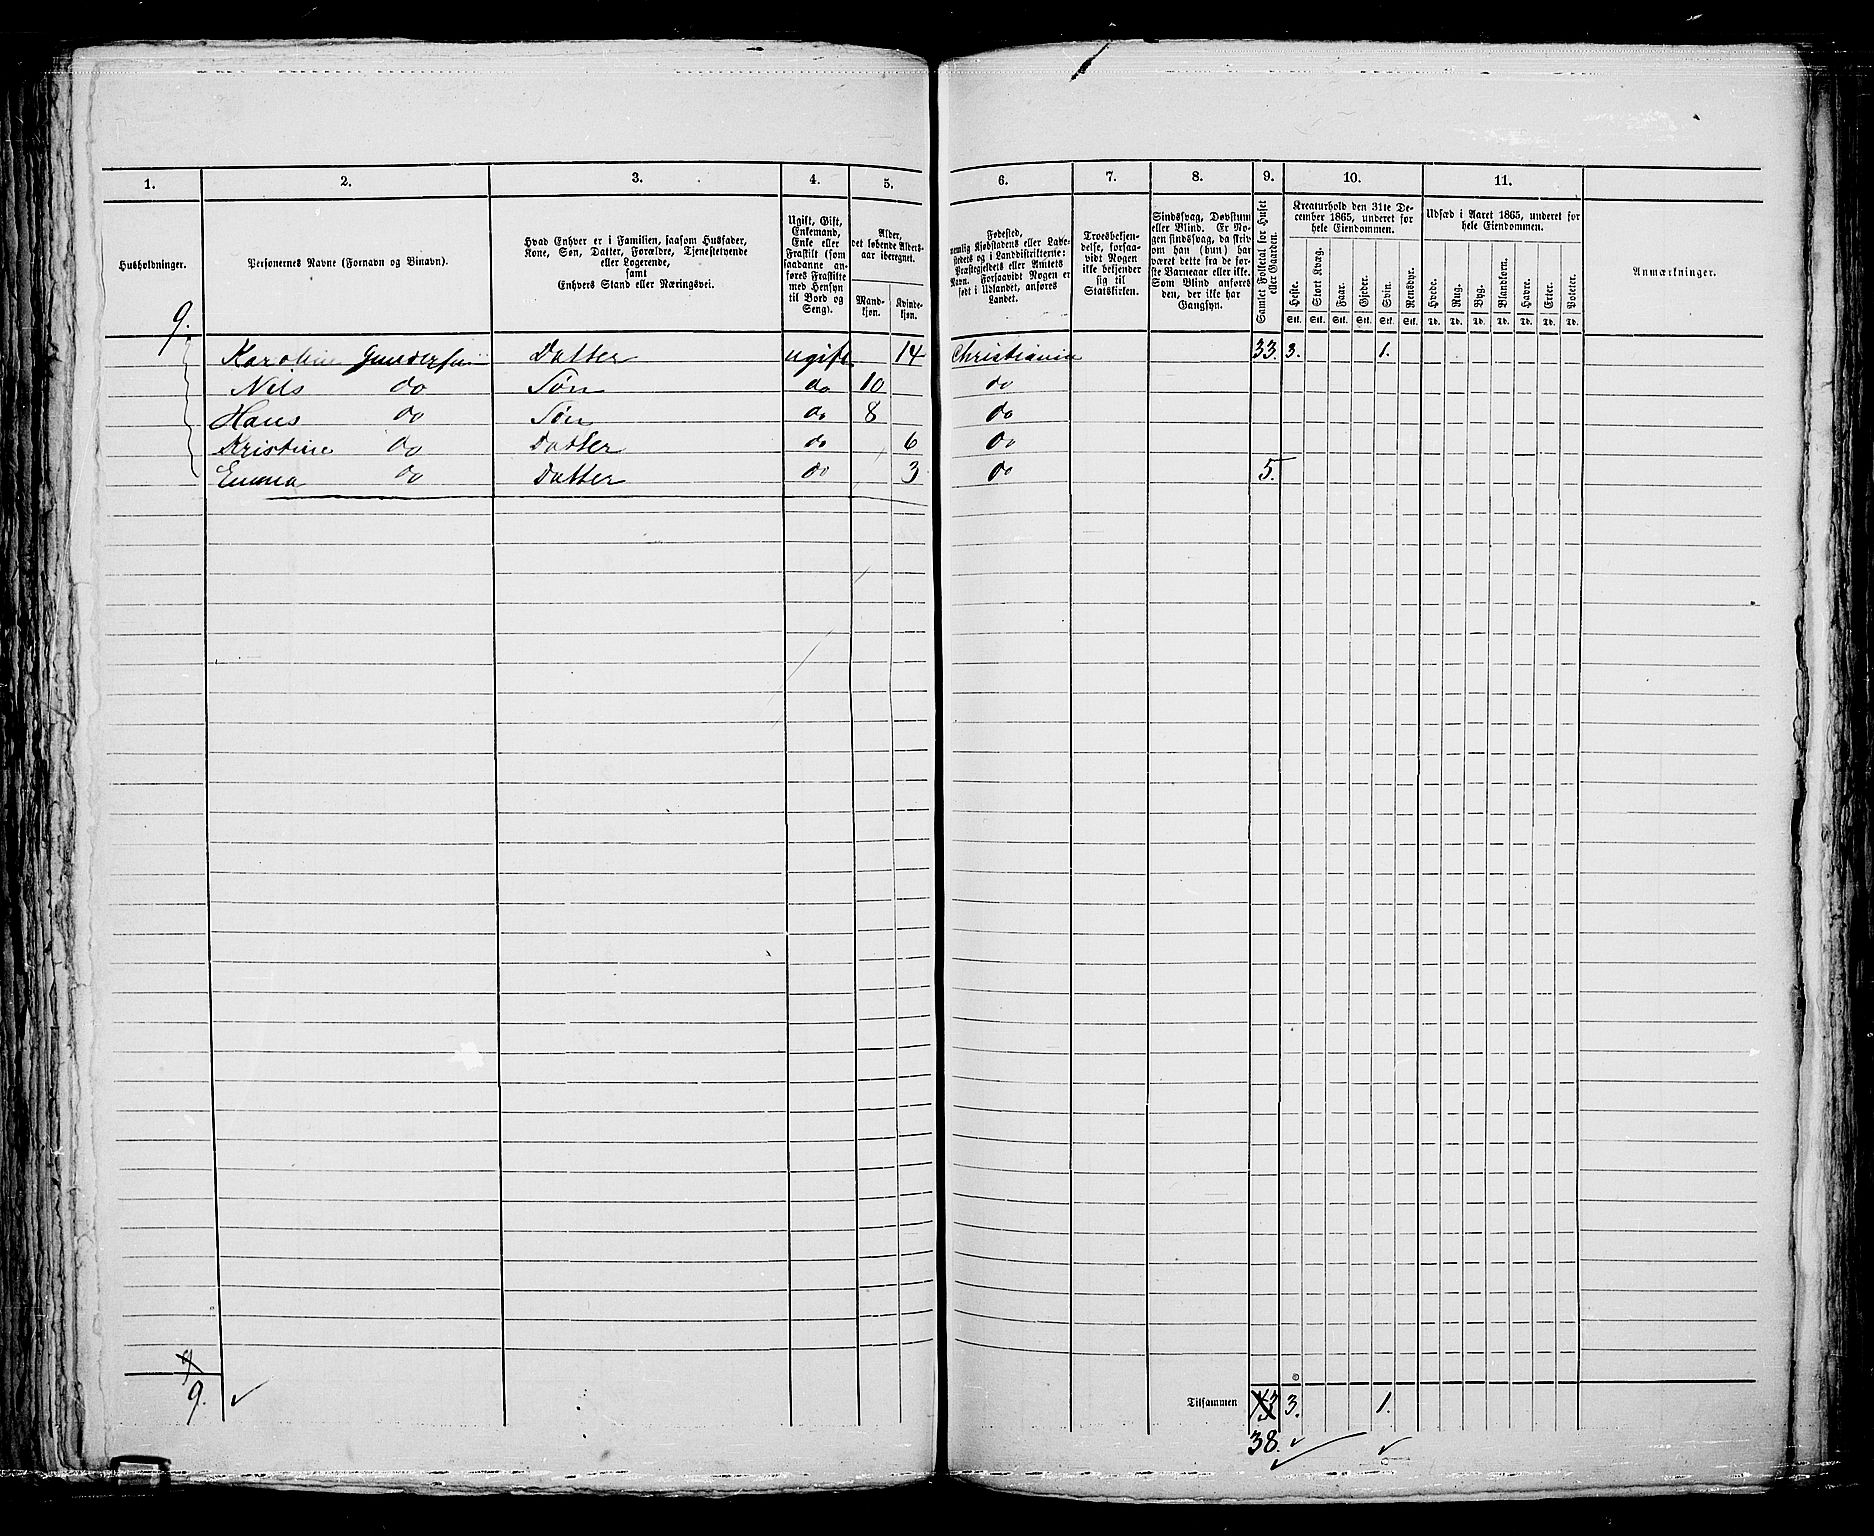 1. 2. 3. 4. 5. 6. 7. 8. 9. 10. 11.
Husholdninger.
Personernes Navne (Fornavn og Binavn).
Hvad Enhver er i Familien, saasom Husfader,
Kone, Søn, Datter, Forældre, Tjenestetyende
eller Logerende,
samt
Enhvers Stand eller Næringsvei.
Ugift, Gift,
Enkemand,
Enke eller
Fraskilt (som
saadanne an-
føres Fraskilte
med Hensyn
til Bord og
Seng).
Alder,
det løbende Alders-
aar iberegnet.
Mand-
kjøn.
Kvinde-
kjøn.
Fødested,
nemlig Kjøbstadens eller Lade-
stedets og i Landdistrikterne:
Præstegjeldets eller Amtets
Navn. Forsaavidt Nogen er
født i Udlandet, anføres
Landet.
Troesbekjen-
delse, forsaa-
vidt Nogen
ikke bekjender
sig til
Statskirken.
Sindssvag, Døvstum
eller Blind. Er No-
gen sindssvag, da skriv
om han (hun) har
været dette fra de før-
ste Barneaar eller ikke.
Som Blind anføres
den, der ikke har
Gangsyn.
Samlet Folketal for Huset
eller Gaarden.
Kreaturhold den 31te De-
cember 1865, underet for
hele Eiendommen.
Heste. Stort Kvæg. Faar. Gjeder. Svin. Rensdyr.
Stk. Stk. Stk. Stk. Stk. Stk.
Udsæd i Aaret 1865, underet for
hele Eiendommen.
Hvede. Rug. Byg. Blandkorn. Havre. Erter. Poteter.
Td. Td. Td. Td. Td. Td. Td.
Anmærkninger.
9.
Karoline Gundersen Datter ugift 14 Christiania 33. 3. 1.
Nils do Søn do 10 do
Hans do Søn do 8 do
Kristine do Datter do 6 do
Emma do Datter do 3 do 5.
9.
Tilsammen 3. 1.
38.